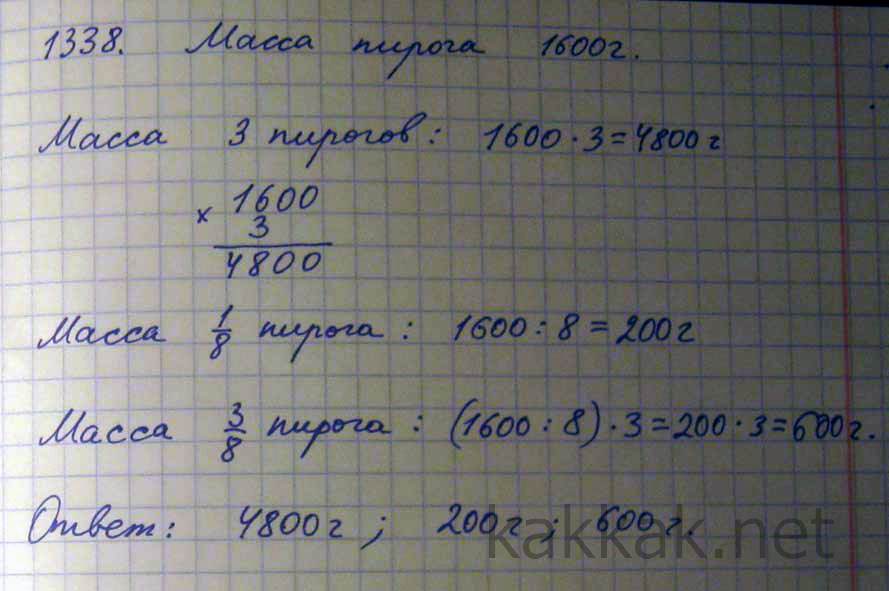 1338. Масса пирога 1600г.
Масса 3 пирогов: 1600·3=4800г
× 1600
3
4800
Масса 1/8 пирога: 1600:8=200г
Масса 3/8 пирога: (1600:8)·3=200·3=600г.
Ответ: 4800г; 200г; 600г.
kakkak.net